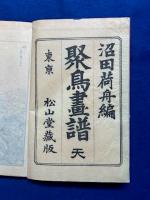 沼田荷舟編
聚鳥畫譜 天
東京 松山堂藏版